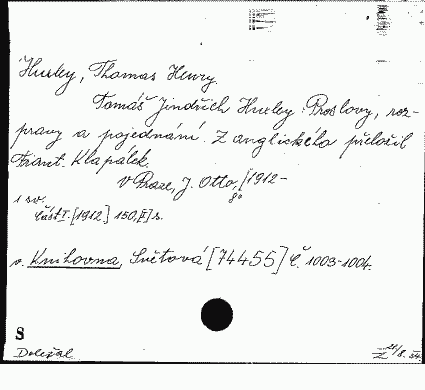 Huxley, Thomas Henry.
Tomáš Jindřich Huxley: Proslovy, roz-
pravy a pojednání. Z anglického přeložil
Frant. Klapálek.
V Praze, J. Otto, [1912-
1 sv. 8°
Část I. [1912] 150, [I] s.
v. Knihovna, Světová [74455] Č. 1003-1004.
S
Doležal